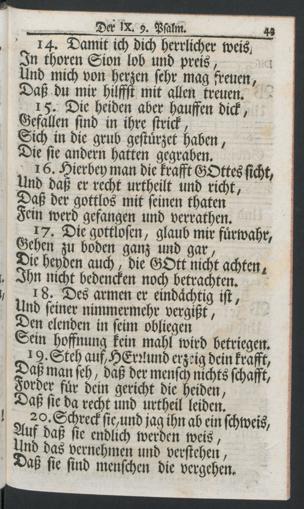 Der IX. 9. Psalm. 43
14. Damit ich dich herrlicher weis,
In thoren Sion lob und preis,
Und mich von herzen sehr mag freuen,
Daß du mir hilfft mit allen treuen.
15. Die heiden aber hauffen dick,
Gefallen sind in ihre strick,
Sich in die grub gestürzet haben,
Die sie andern hatten gegraben.
16. Hierbey man die krafft GOttes sicht,
Und daß er recht urtheilt und richt,
Daß der gottlos mit seinen thaten
Fein werd gefangen und verrathen.
17. Die gottlosen, glaub mir fürwahr,
Gehen zu boden ganz und gar,
Die heyden auch, die GOtt nicht achten,
Ihn nicht bedencken noch betrachten.
18. Des armen er eindächtig ist,
Und seiner nimmermehr vergißt,
Den elenden in seim obliegen
Sein hoffnung kein mahl wird betriegen.
19. Steh auf, HErr! und erzeig dein krafft,
Daß man seh, daß der mensch nichts schafft,
Forder für dein gericht die heiden,
Daß sie da recht und urtheil leiden.
20. Schreck sie, und jag ihn ab ein schweis,
Auf daß sie endlich werden weis,
Und das vernehmen und verstehen,
Daß sie sind menschen die vergehen.